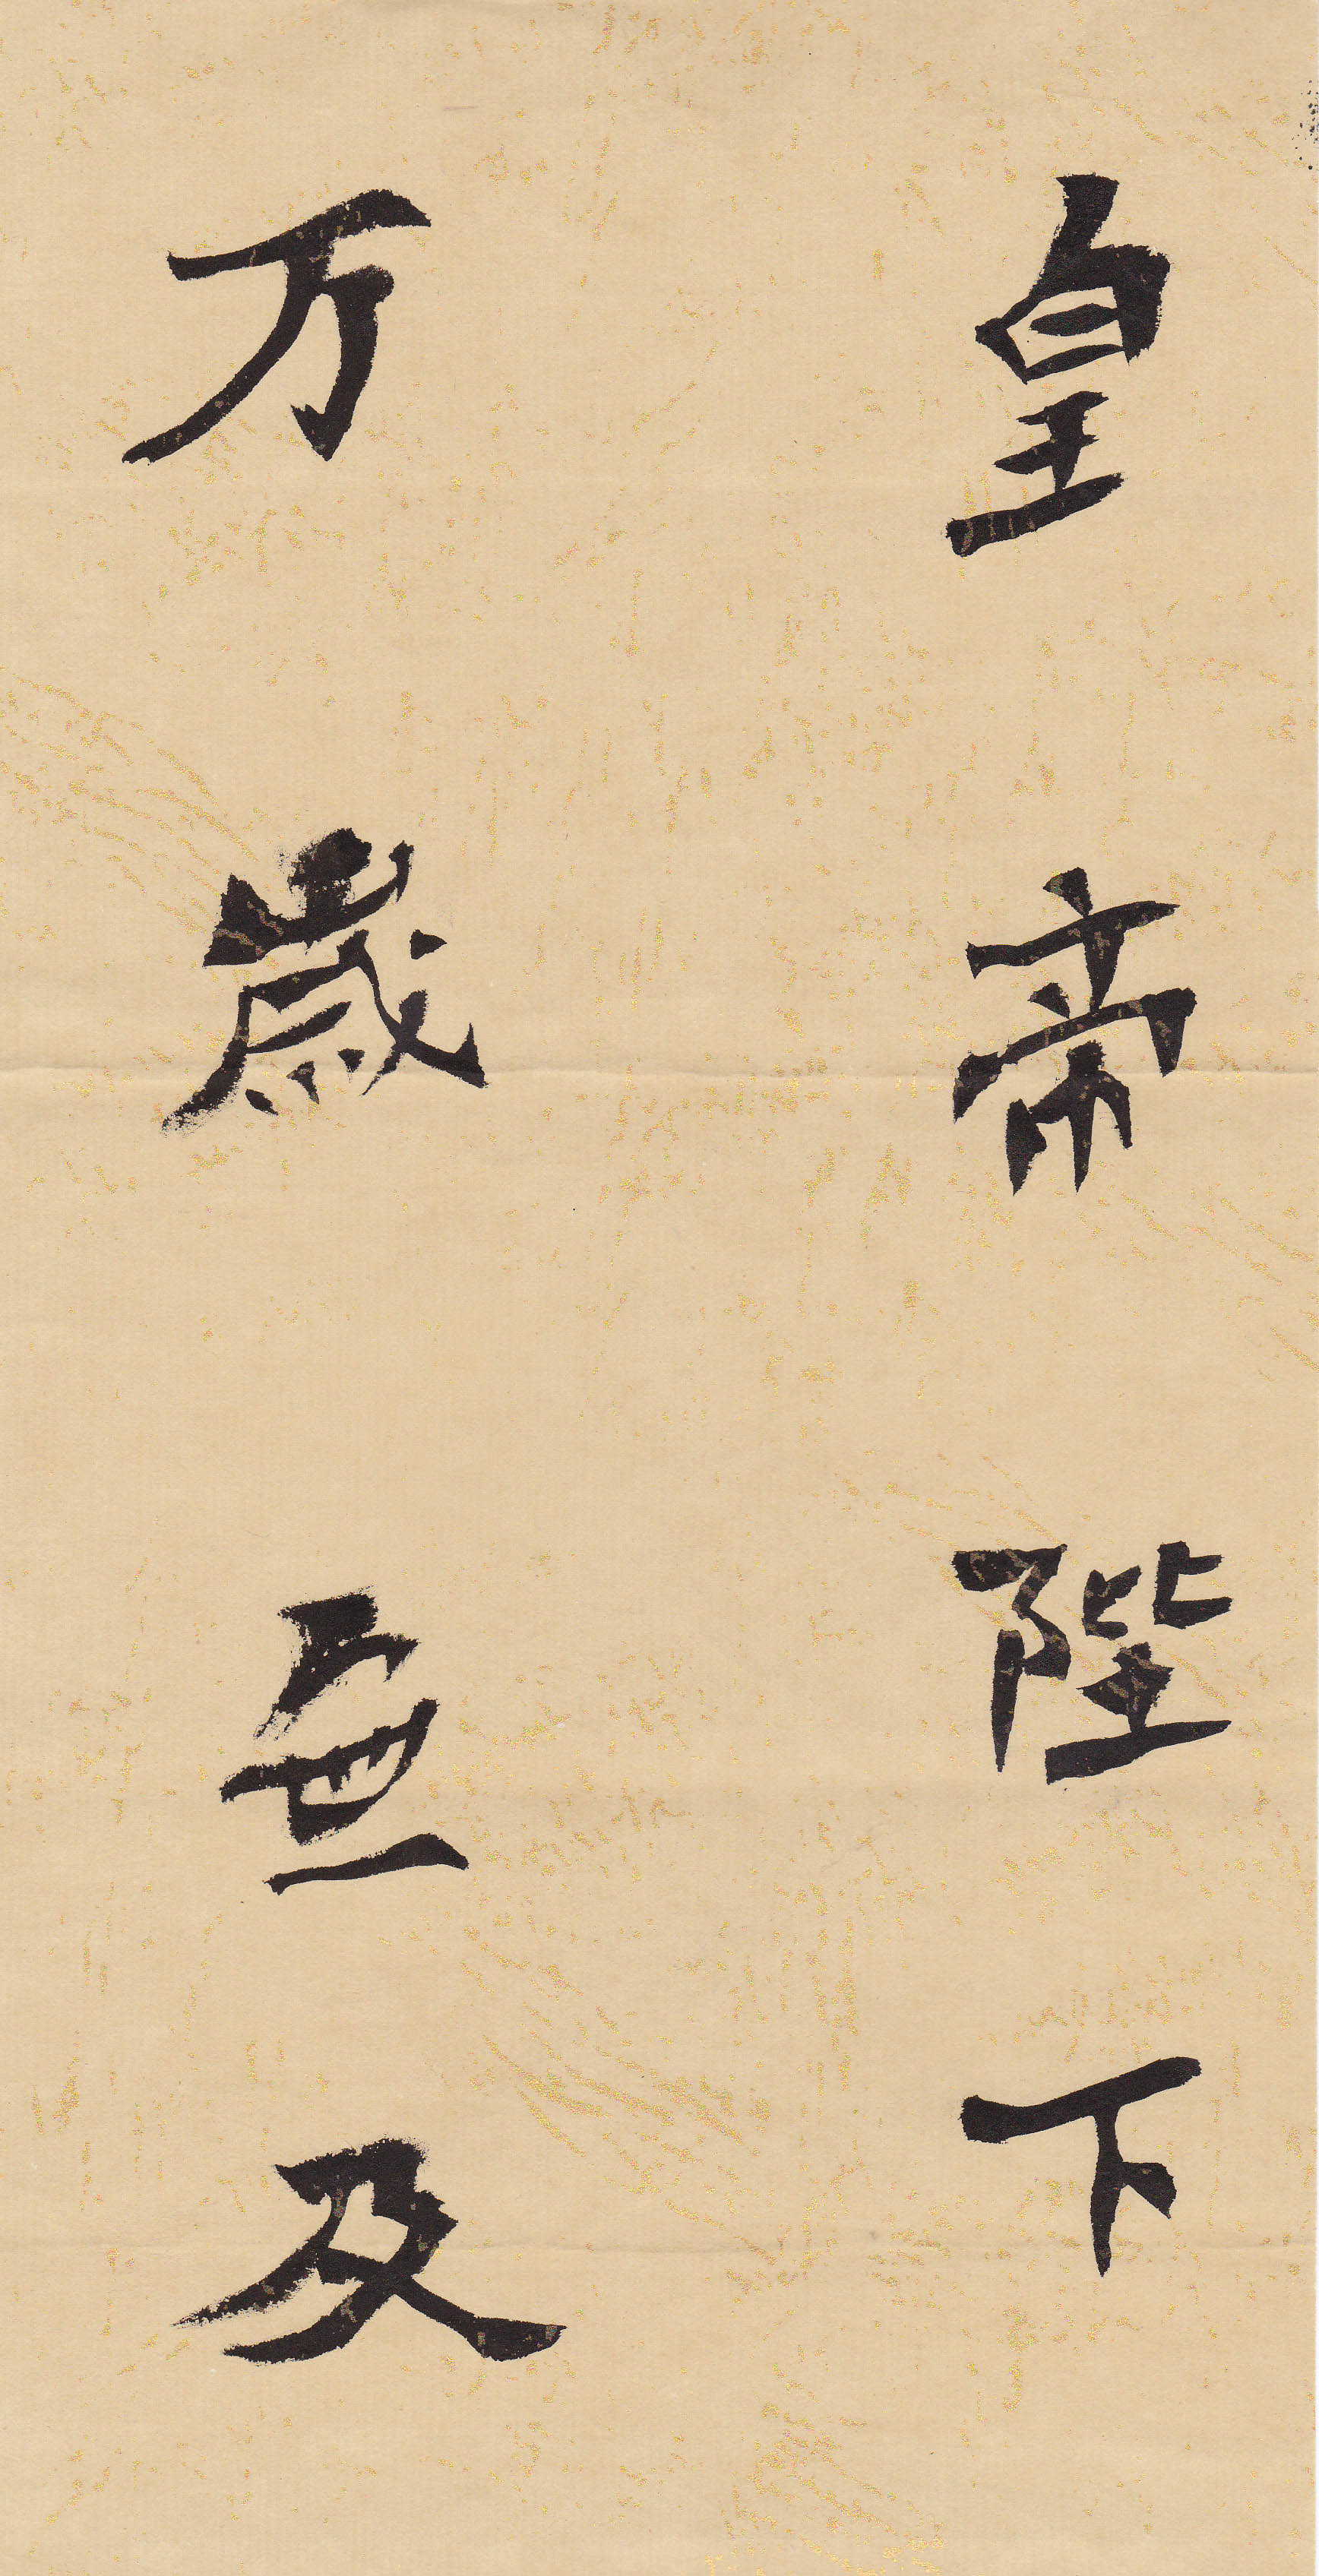 皇帝陛下
万歳無及